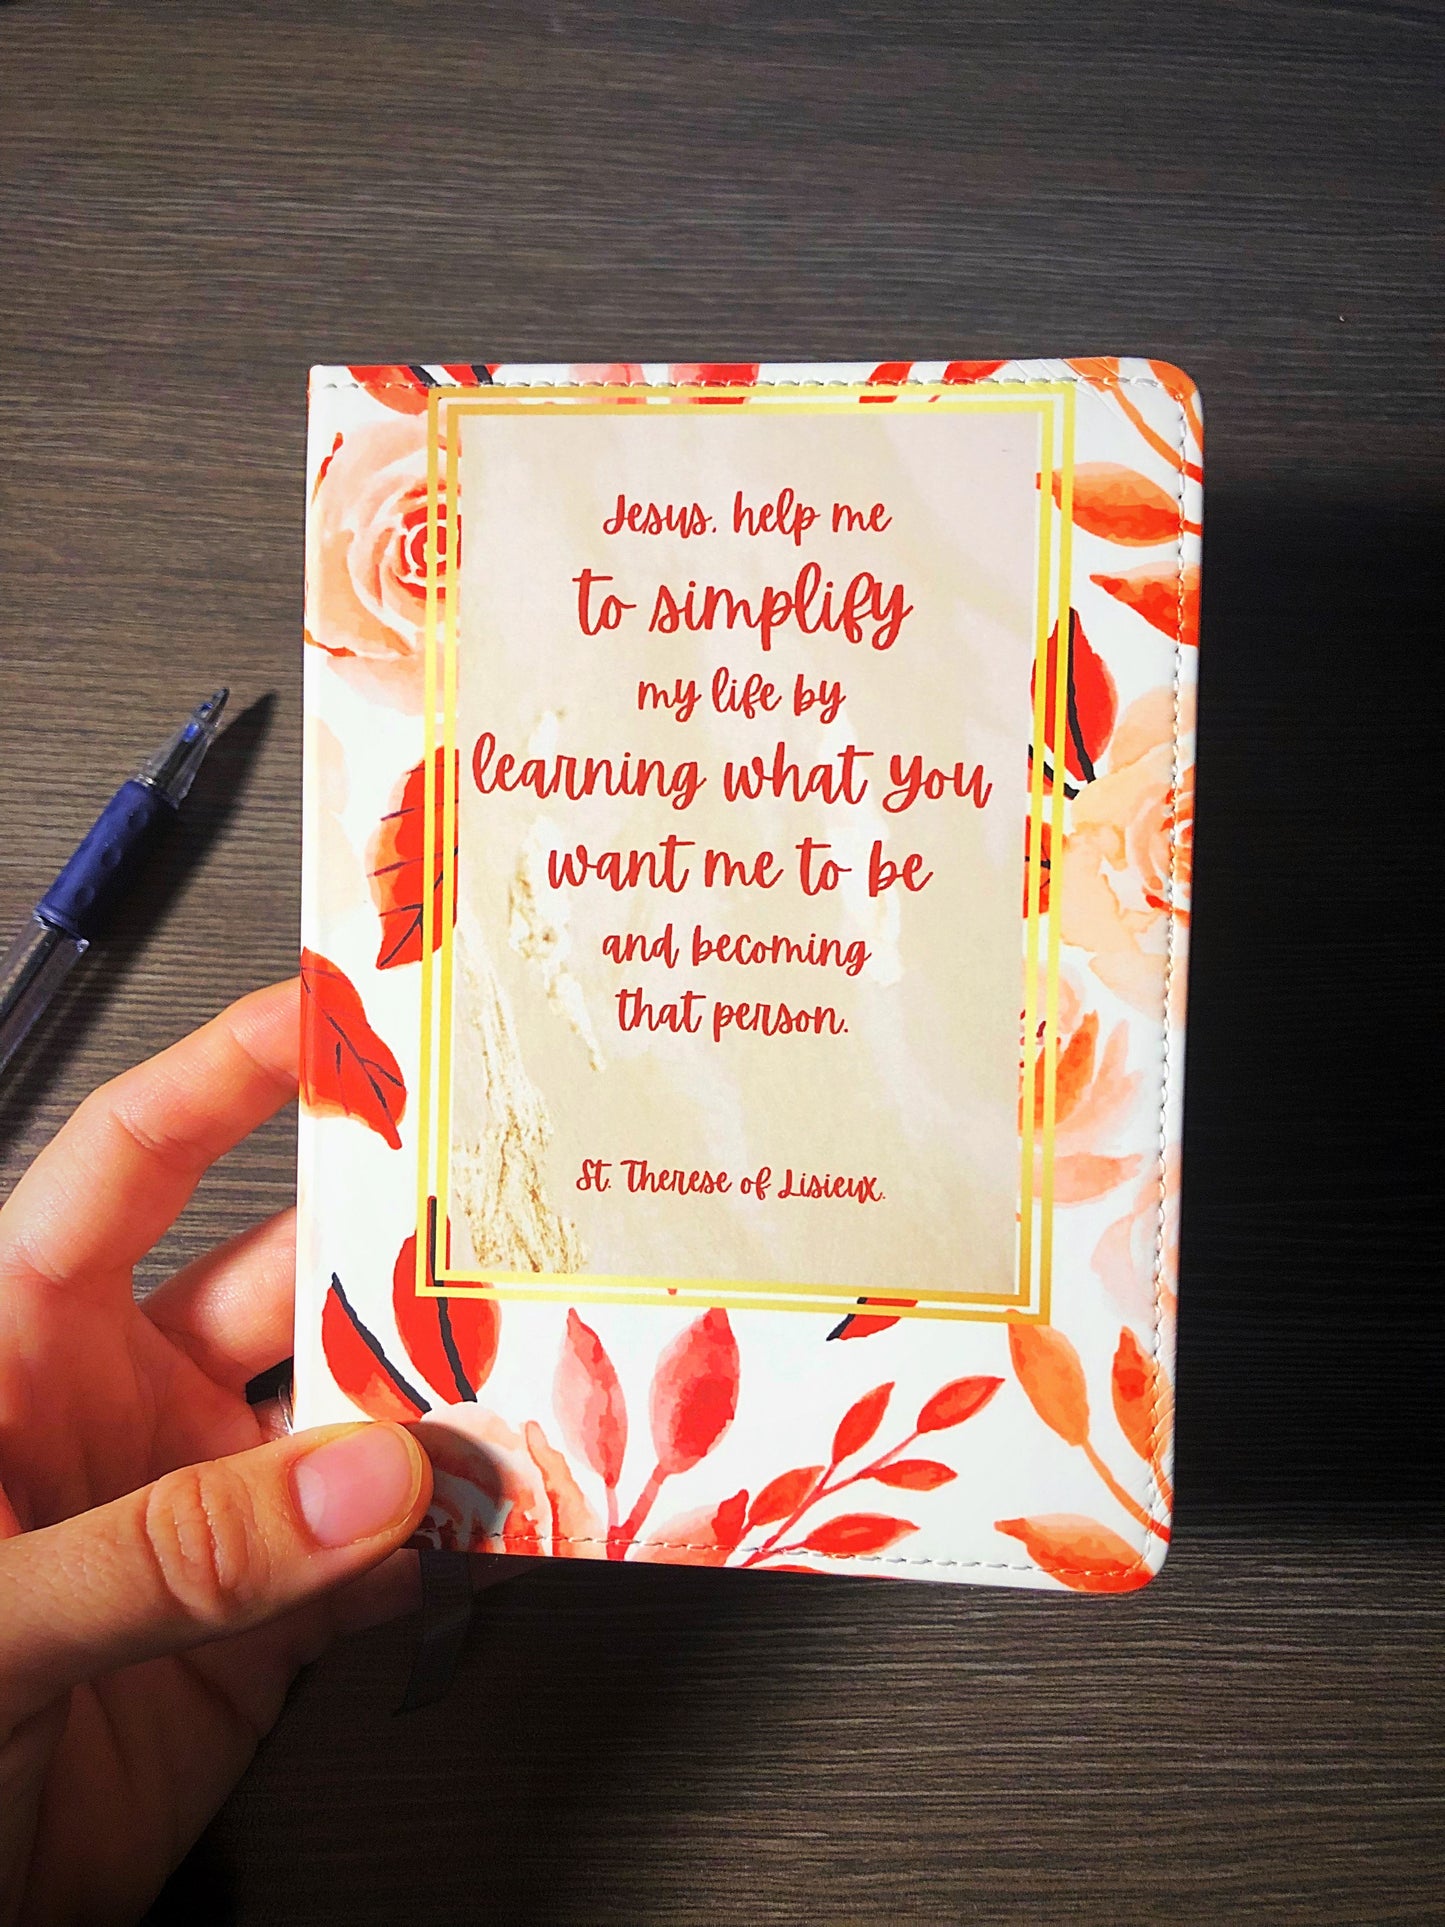 Jesus, help me
to simplify
my life by
learning what you
want me to be
and becoming
that person.
St. Therese of Lisieux.